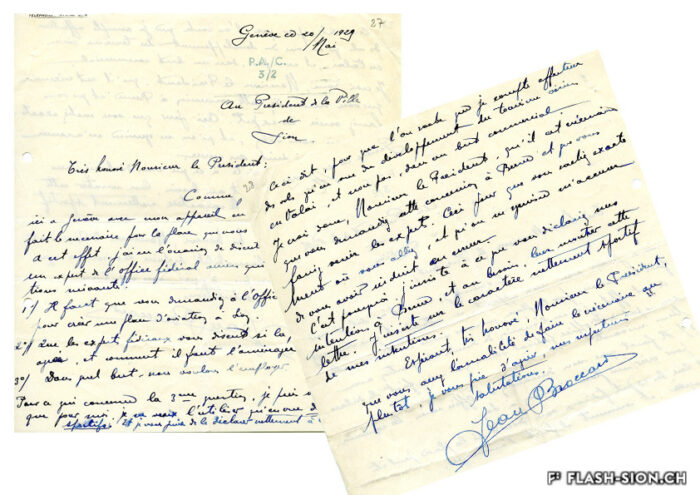 27
Genève ce 20/ Mai 1929
P.A./C.
3/2
Au Président de la Ville
de
Sion
Très honoré Monsieur le Président:
28
Comme
ici à Genève avec mon appareil, en
fait le nécessaire pour la place que nous
A cet effet, j'ai eu l'occasion de
un expert de l'office fédéral ainsi que
trois
1°/ Il faut que vous demandiez à l'Office
pour créer un place d'aviation à Sion.
2°/ Que les experts fédéraux vous disent si la
et comment il faut l'aménager
3°/ Dans quel but, nous voulons l'employer
Pour ce qui concerne la 3me question, je puis
que pour moi, je ne veux l'utiliser qu'en vue de
sportifs et je vous prie de le déclarer nettement à
Ceci dit, pour que l'on sache que je compte effectuer
des vols qu'en vue de développement du tourisme
en Valais, et non pas, dans un but commercial
Je crois donc, Monsieur le Président, qu'il est nécessaire
que vous demandiez cette concession à Berne et que vous
fassiez venir les experts. Ceci pour que vous sachiez exacte
ment où vous allez, et qu'on ne vienne m'accuser
de vous avoir induit en erreur.
C'est pourquoi j'insiste à ce que vous déclariez mes
intentions à Berne, et au besoin, leur montrer cette
lettre. J'insiste sur le caractère nettement sportif
de mes intentions.
Espérant, très honoré, Monsieur le Président,
que vous ayez l'amabilité de faire le nécessaire au
plutôt, je vous prie d'agréer, mes
salutations.
Jean Broccard
FLASH-SION.CH